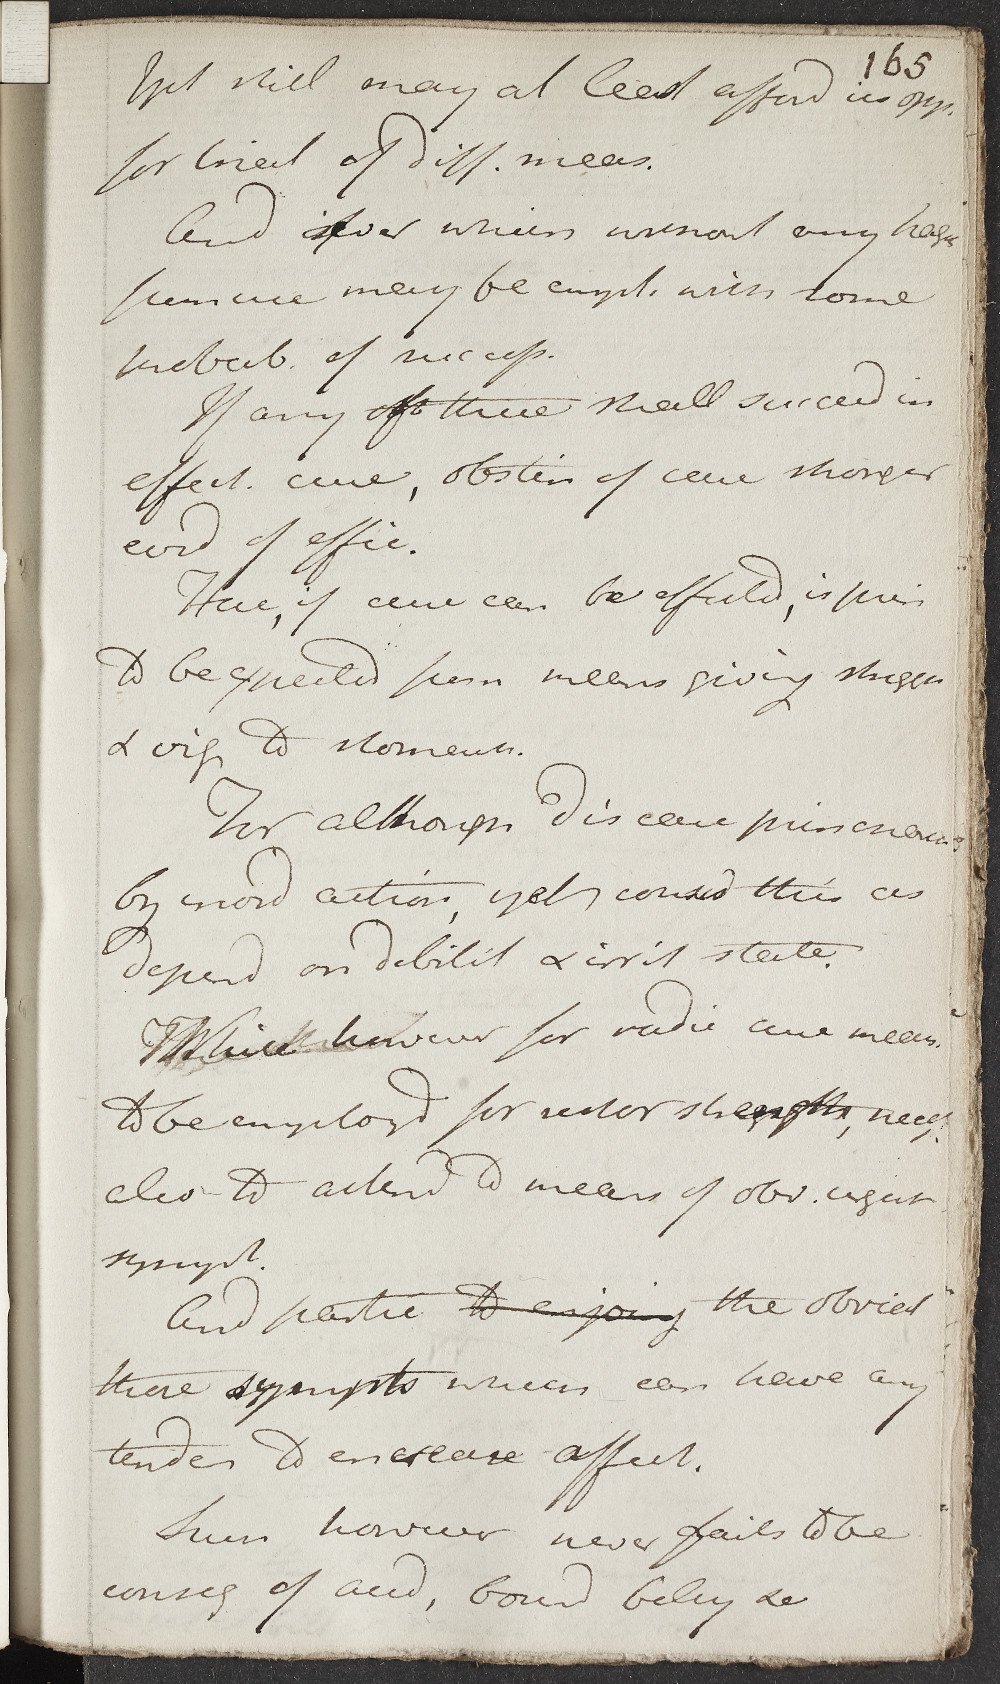 165
Yet still may at least afford us opp.
for trial of diff. meas.
And ever which without any haz
sume may be empl. with some
probab. of success.
If any of these shall succeed in
effect. cure, obstin of case stronger
evid of effic.
Here, if cure can be effected, is prin
to be expected from means giving
& vig to stomach.
For although disease prin
by inord action, yet consid this as
depend on debilit & irrit state.
While however for radic cure means
to be employd for restor strength, necess.
also to attend to means of obv. urgent
sympt.
And partic to enjoin the obviat
those sympts which can have any
tenden to encrease affect.
Such however never fails to be
conseq of acid, bound belly &c